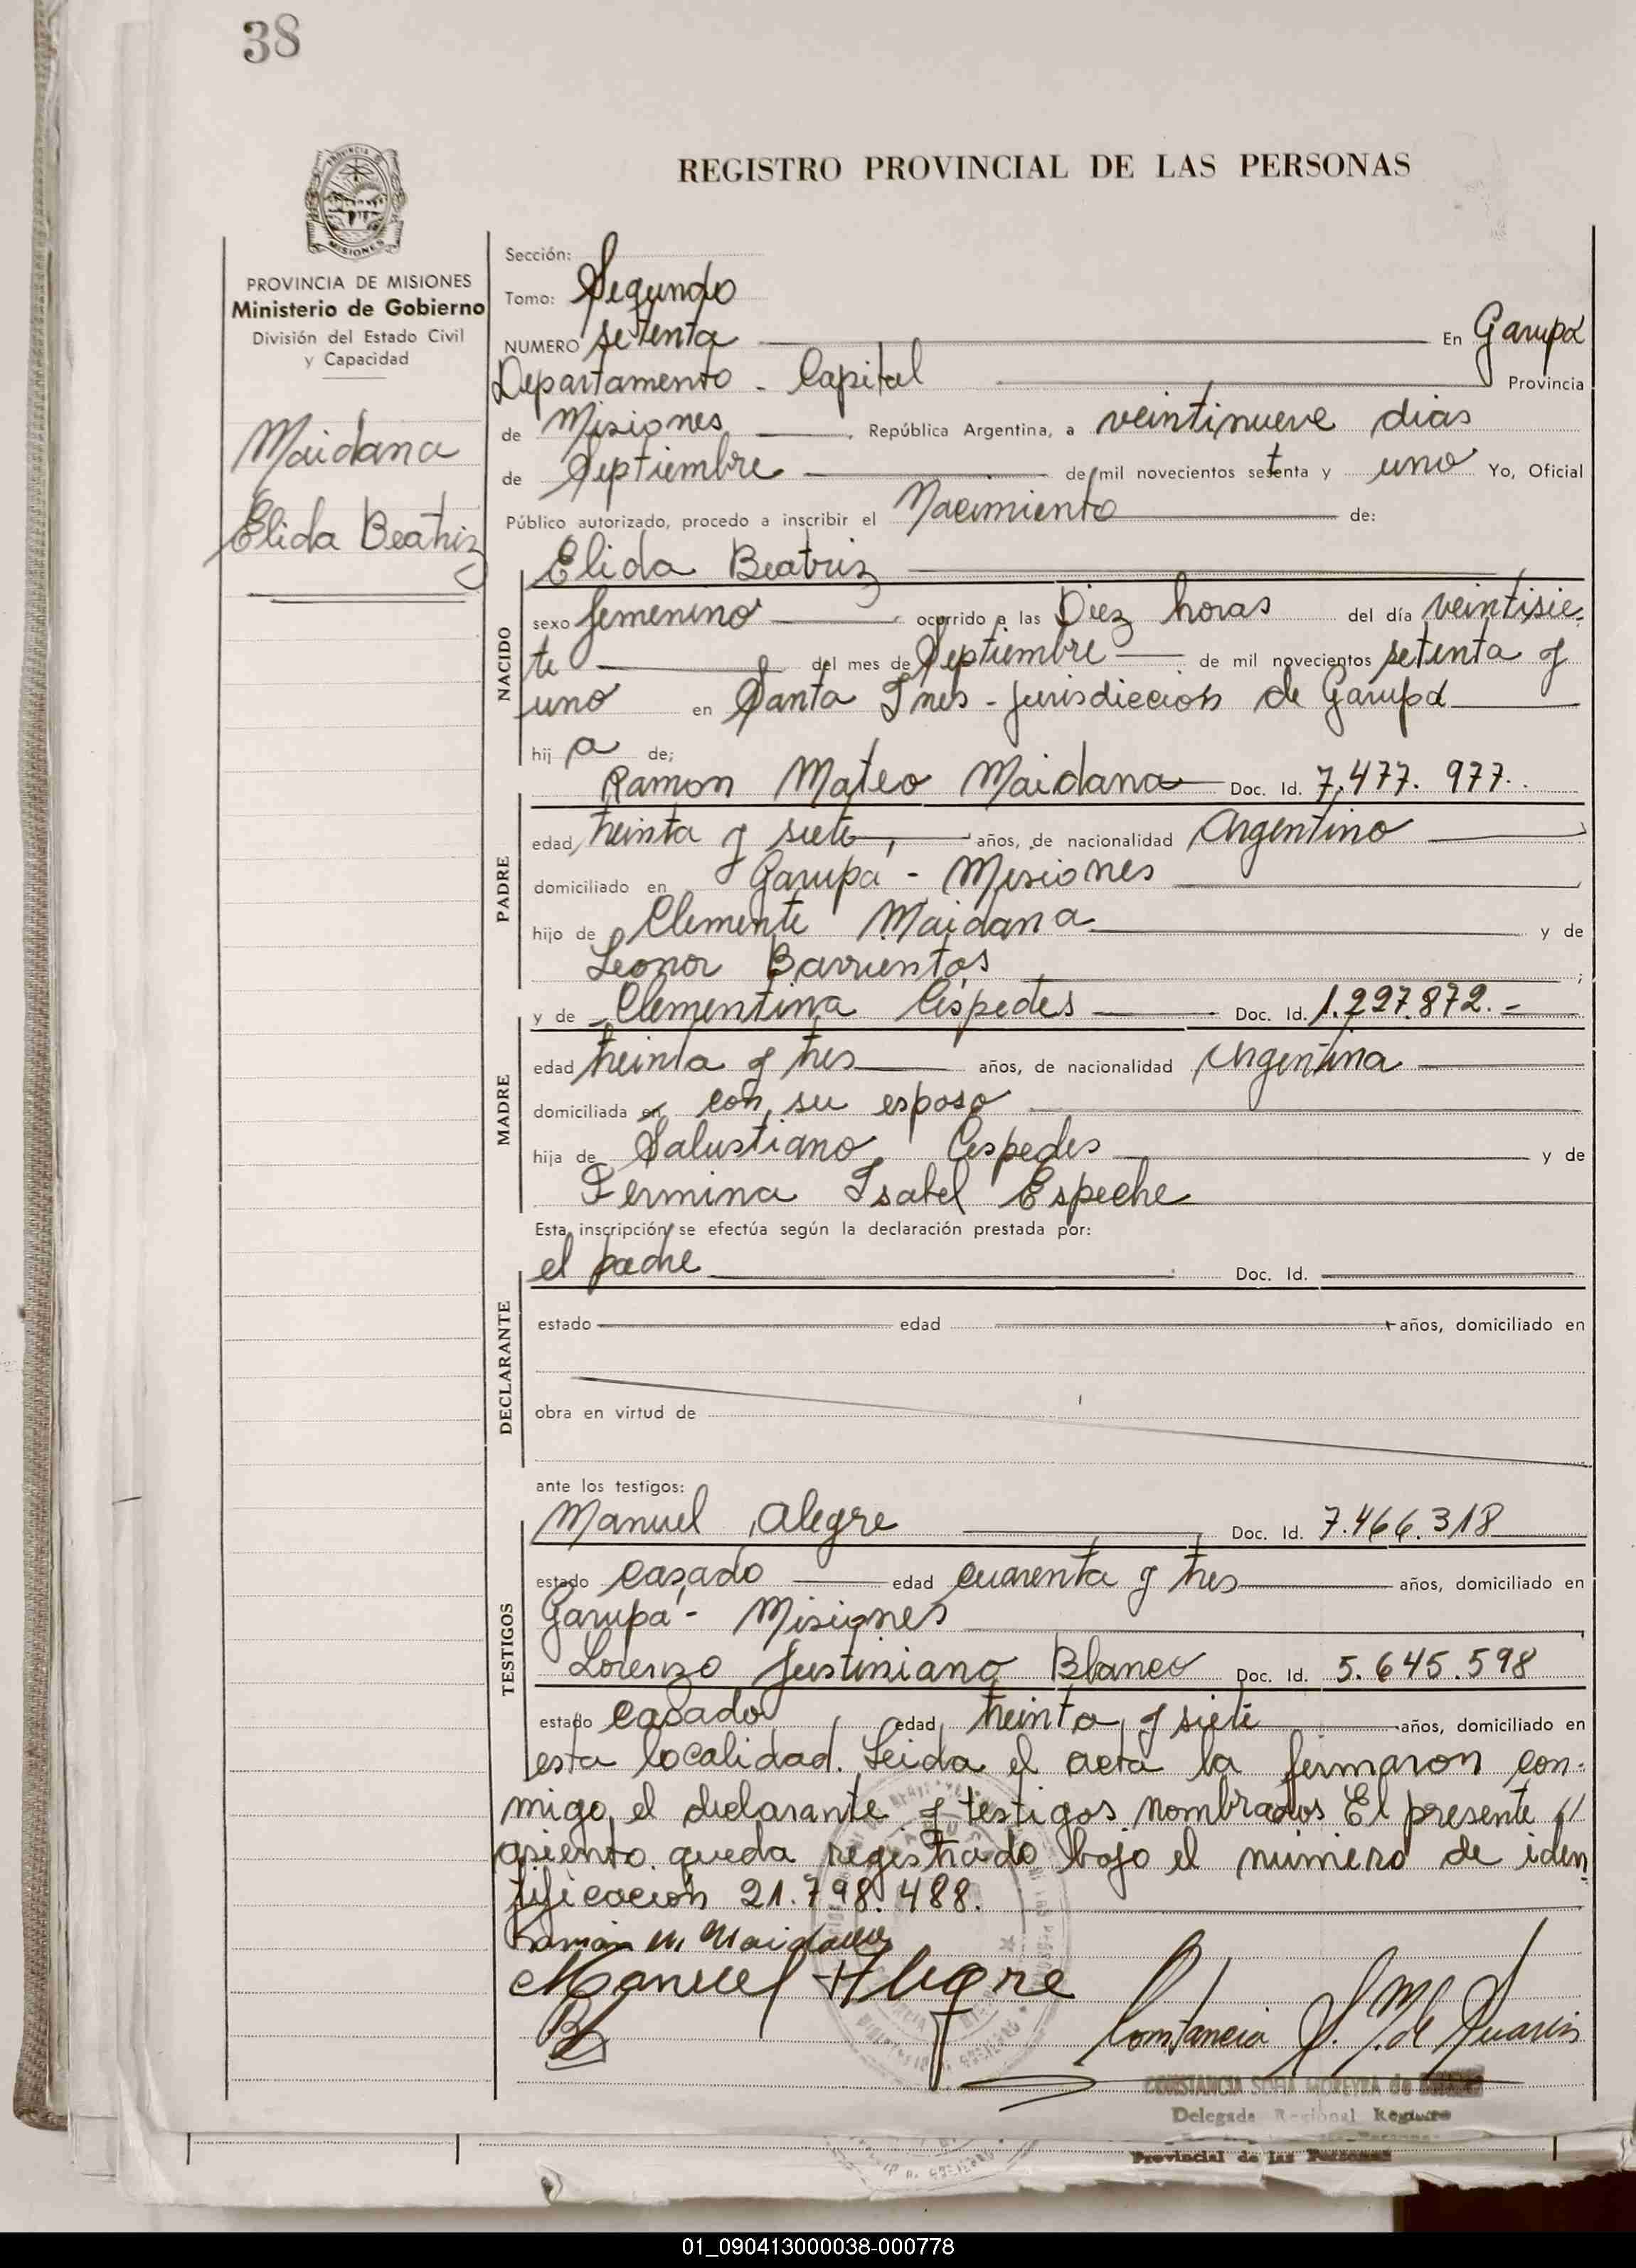 38
REGISTRO PROVINCIAL DE LAS PERSONAS
PROVINCIA DE MISIONES
Ministerio de Gobierno
División del Estado Civil
y Capacidad
Maidana
Elida Beatriz
Sección:
Tomo: Segundo
NUMERO setenta En Garupá
Departamento - Capital Provincia
de Misiones, República Argentina, a veintinueve dias
de Septiembre de mil novecientos setenta y uno Yo, Oficial
Público autorizado, procedo a inscribir el Nacimiento de:
Elida Beatriz
NACIDO
sexo femenino ocurrido a las Diez horas del día veintisie-
te del mes de Septiembre de mil novecientos setenta y
uno en Santa Ines - jurisdicción de Garupá
hij a de;
Ramon Mateo Maidana Doc. Id. 7.477.977.
PADRE
edad treinta y siete, años, de nacionalidad Argentino
domiciliado en Garupá - Misiones
hijo de Clemente Maidana y de
Leonor Barrientos ;
y de Clementina Céspedes Doc. Id. 1.227.872.-
MADRE
edad treinta y tres años, de nacionalidad Argentina
domiciliada en con su esposo
hija de Salustiano Cespedes y de
Fermina Isabel Espeche
Esta inscripción se efectúa según la declaración prestada por:
el padre Doc. Id.
DECLARANTE
estado edad años, domiciliado en
obra en virtud de
ante los testigos:
Manuel Alegre Doc. Id. 7.466.318
TESTIGOS
estado casado edad cuarenta y tres años, domiciliado en
Garupá - Misiones
Lorenzo Justiniano Blanco Doc. Id. 5.645.598
estado casado edad treinta y siete años, domiciliado en
esta localidad. Leida el acta la firmaron con-
migo, el declarante y testigos nombrados El presente
asiento queda registrado bajo el número de iden
tificación 21.798.488.
Ramón M. Maidana
Manuel Alegre
Constancia S. M. de Suarez
CONSTANCIA SOFIA MOREYRA de
Delegada Regional Registro
Provincial de las Personas
01_090413000038-000778